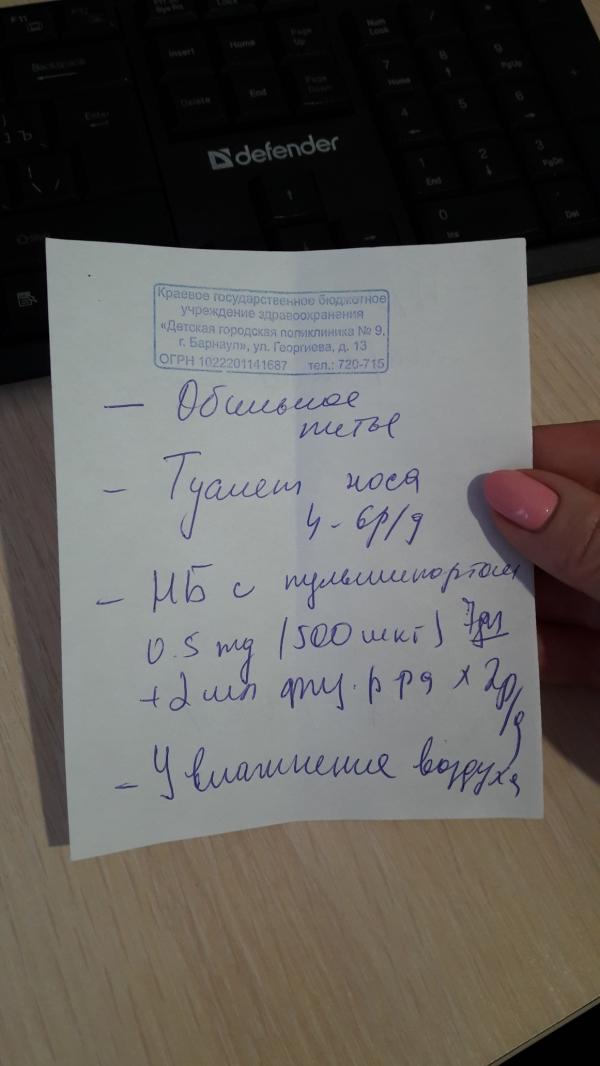 F11
Backspace
Enter
Insert
Home
Page Up
Delete
End
Page Down
Num Lock
7
Home
8
9
PgUp
4
5
6
1
End
2
3
PgDn
0
Ins
.
Del
defender
Краевое государственное бюджетное
учреждение здравоохранения
«Детская городская поликлиника № 9,
г. Барнаул», ул. Георгиева, д. 13
ОГРН 1022201141687 тел.: 720-715
— Обильное
питье
- Туалет носа
4-6р/д
- НБ с пульмикортом
0.5 mg (500 мкг) 7дн
+2 мл физ. р-ра x 2р/д
- Увлажнение воздуха